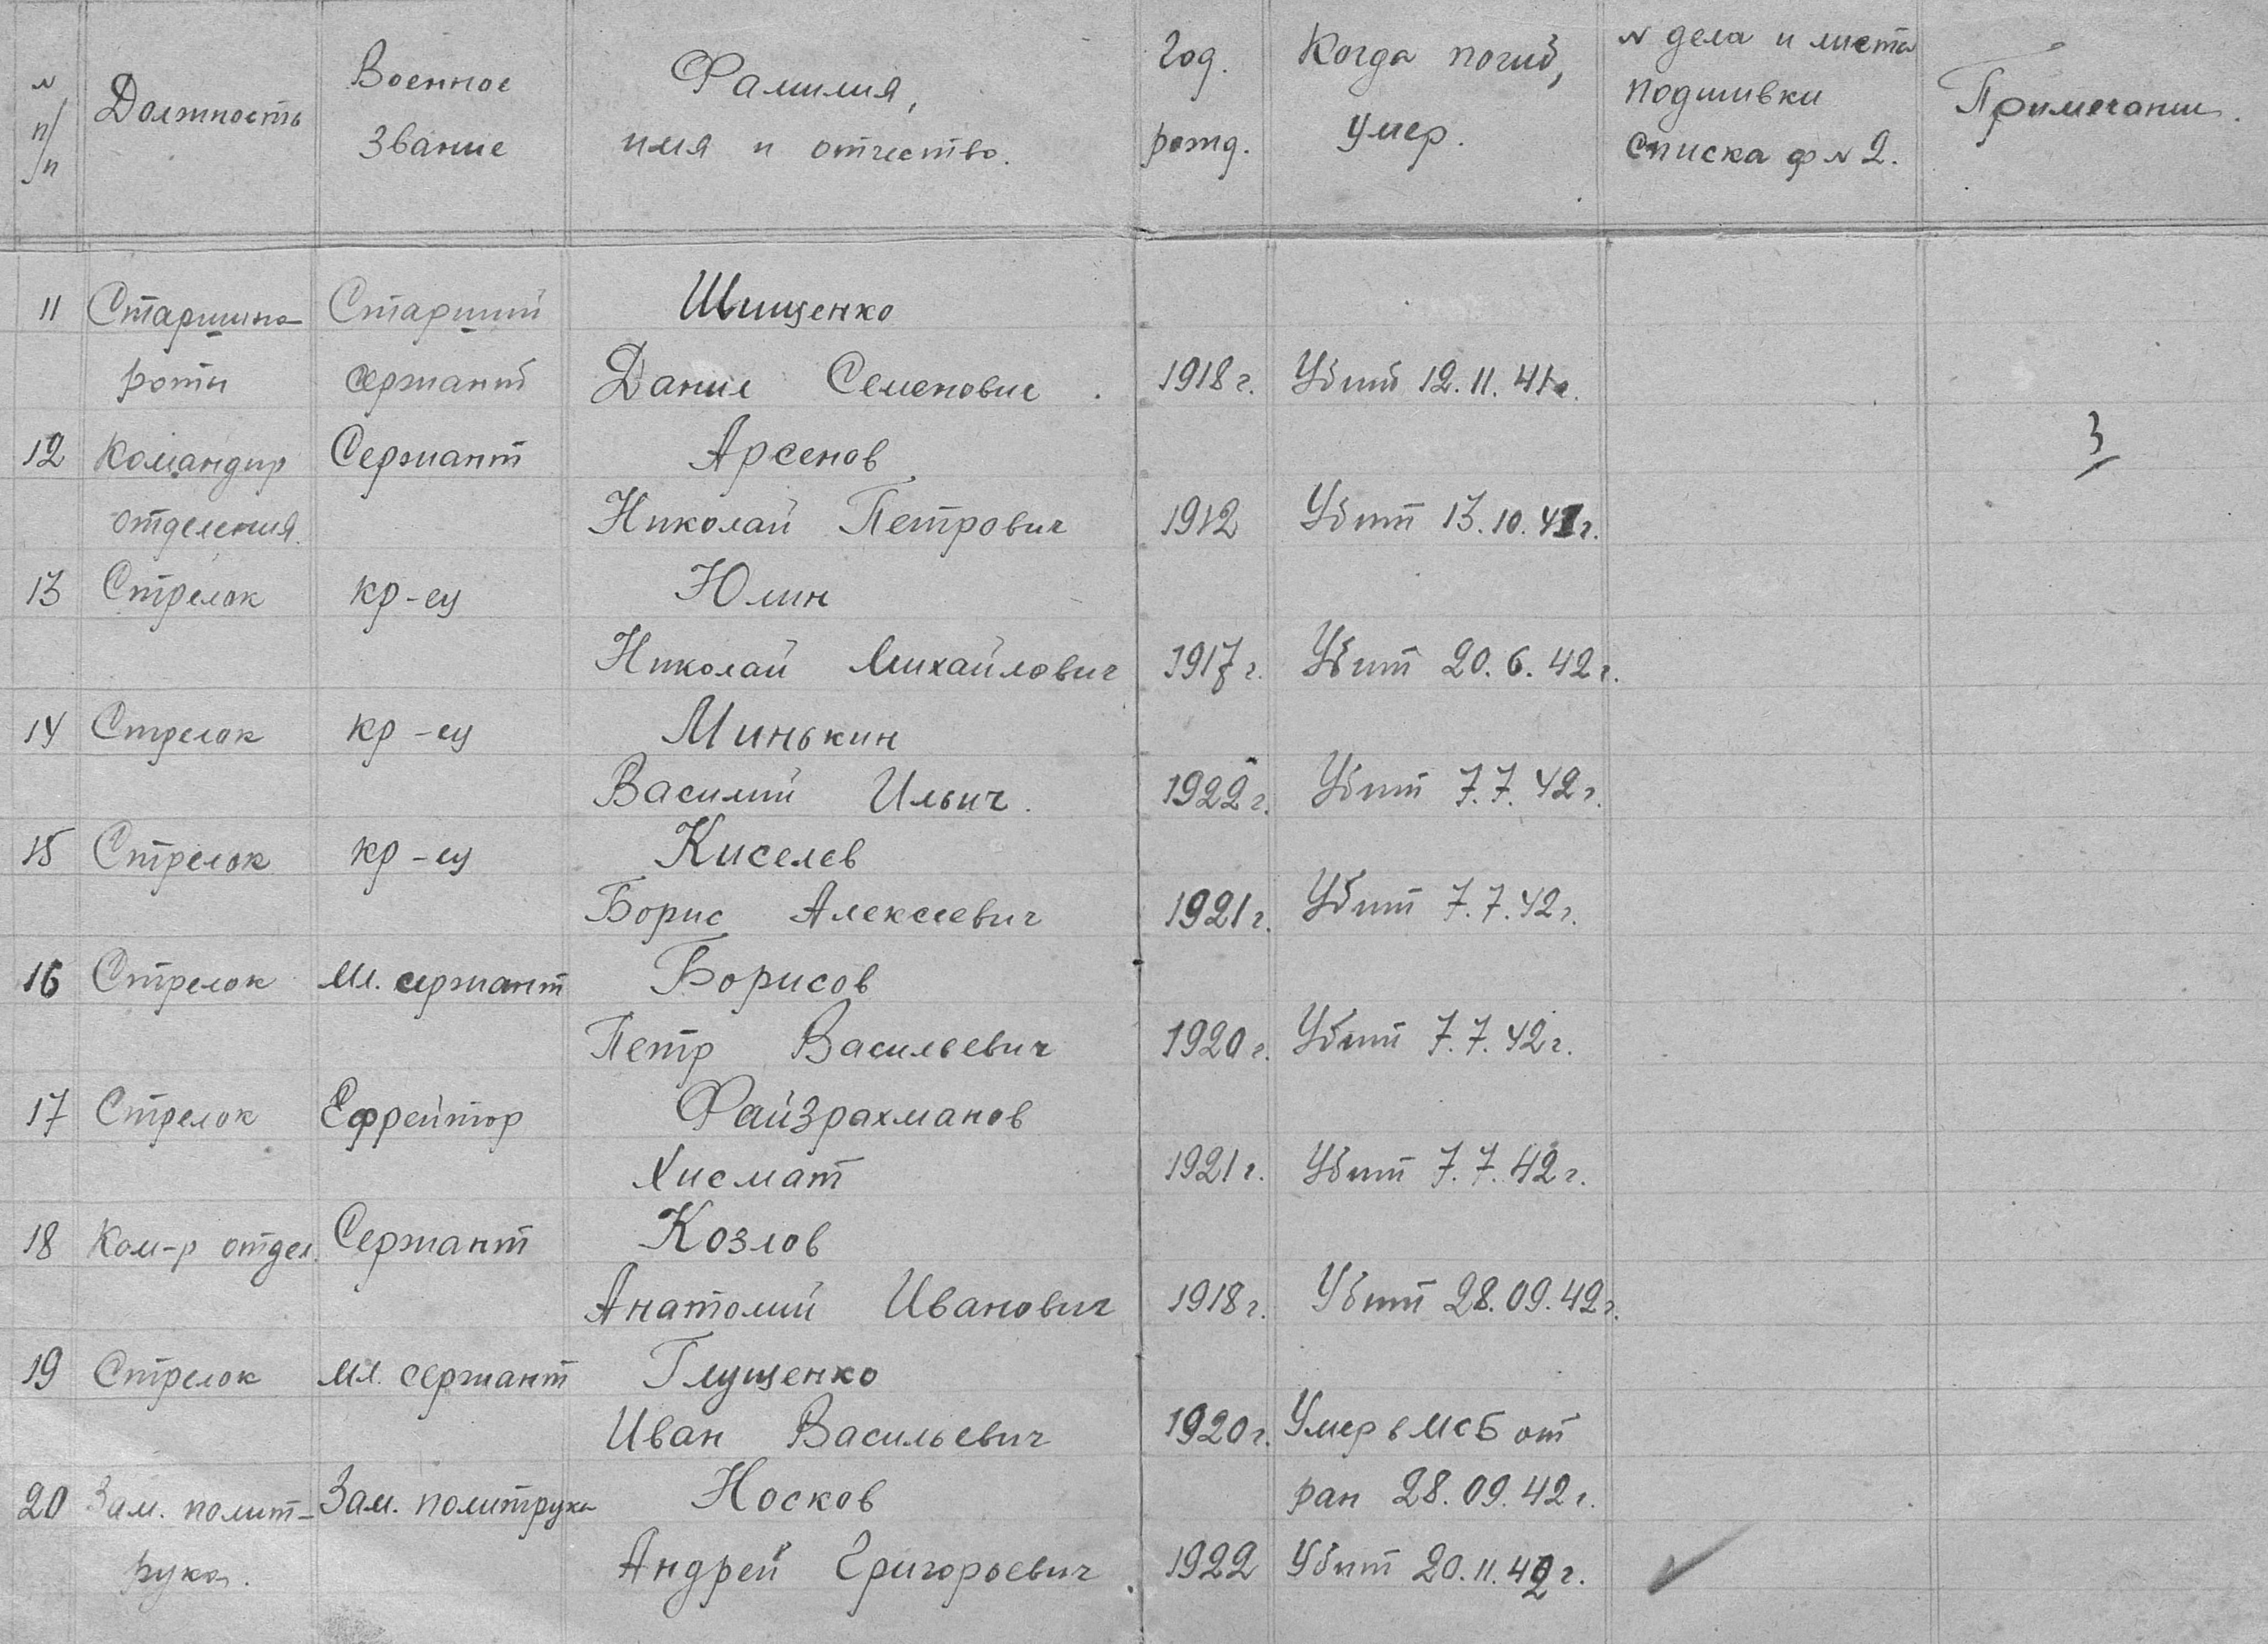 № п/п Должность Военное звание Фамилия, имя и отчество. Год. рожд. Когда погиб, умер. № дела и листа подшивки списка ф № 2. Примечание.
11 Старшина Старший Шищенко
роты сержант Данил Семенович 1918 г. Убит 12.11.41г.
12 Командир Сержант Арсенов
3
отделения. Николай Петрович 1912 Убит 13.10.41г.
13 Стрелок кр-ец Юлин
Николай Михайлович 1917 г. Убит 20.6.42г.
14 Стрелок кр-ец Минькин
Василий Ильич. 1922 г. Убит 7.7.42г.
15 Стрелок кр-ец Киселев
Борис Алексеевич 1921 г. Убит 7.7.42г.
16 Стрелок Мл. сержант Борисов
Петр Васильевич 1920 г. Убит 7.7.42г.
17 Стрелок Ефрейтор Файзрахманов
Хисмат 1921 г. Убит 7.7.42г.
18 Ком-р отдел. Сержант Козлов
Анатолий Иванович 1918 г. Убит 28.09.42г.
19 Стрелок Мл. сержант Глущенко
Иван Васильевич 1920 г. Умер в МСБ от
20 Зам. полит- Зам. политрука Носков ран 28.09.42г.
рука. Андрей Григорьевич 1922 Убит 20.11.42г.